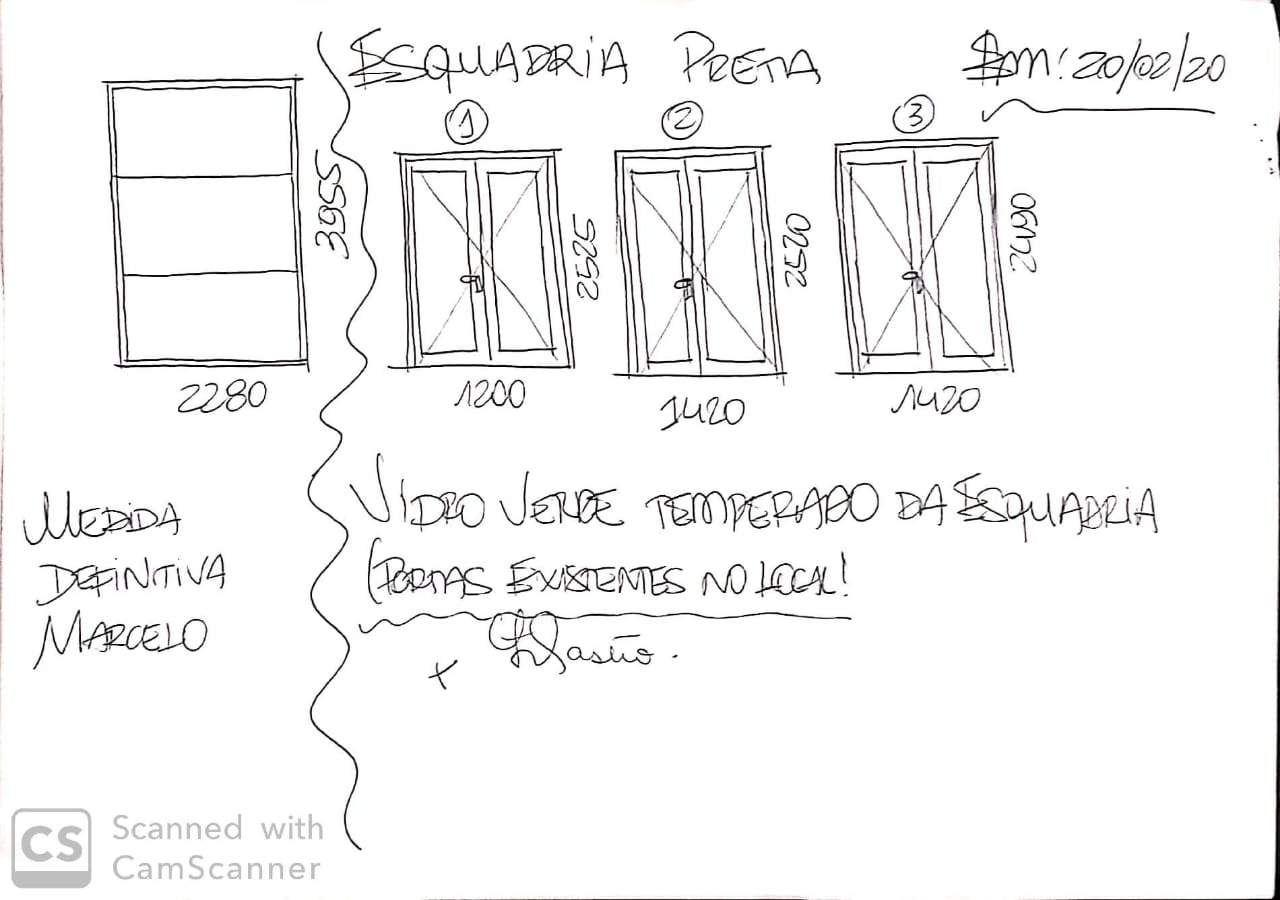 ESQUADRIA PRETA
EM: 20/02/20
1
2
3
3955
2525
2520
2490
2280
1200
1420
1420
VIDRO VERDE TEMPERADO DA ESQUADRIA
(PORTAS EXISTENTES NO LOCAL!
MEDIDA
DEFINITIVA
MARCELO
X
CS
Scanned with
CamScanner